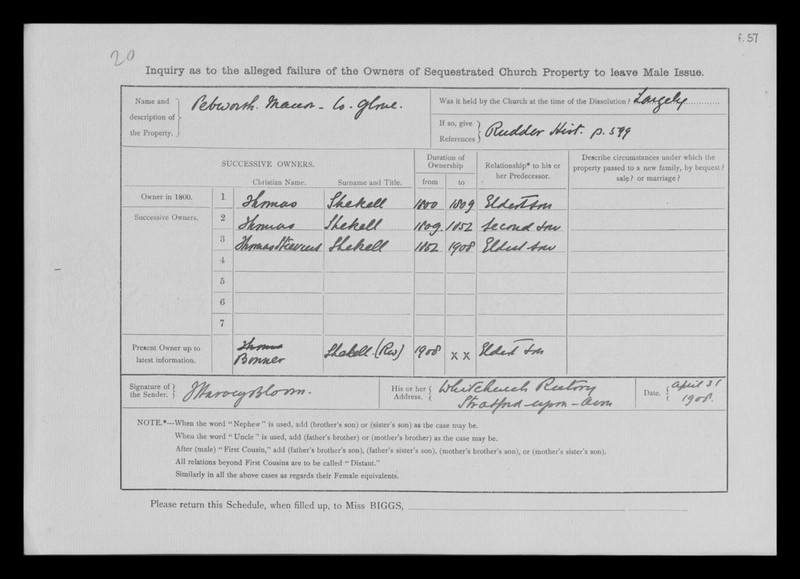 f. 57
20
Inquiry as to the alleged failure of the Owners of Sequestrated Church Property to leave Male Issue.
Name and description of the Property. Pebworth. Manor - Co. Glouc.
Was it held by the Church at the time of the Dissolution? Largely
If so, give References Rudder Hist. p. 599
SUCCESSIVE OWNERS.
Christian Name. Surname and Title.
Duration of Ownership from to
Relationship* to his or her Predecessor.
Describe circumstances under which the property passed to a new family, by bequest? sale? or marriage?
Owner in 1800. 1 Thomas Shekell 1800 1809 Eldest son
Successive Owners. 2 Thomas Shekell 1809 1852 Second son
3 Thomas Shekell 1852 1908 Eldest son
4
5
6
7
Present Owner up to latest information. Thomas Bonner Shekell (Rev) 1908 x x Eldest son
Signature of the Sender. J Harvey Bloom.
His or her Address. Whitchurch Rectory
Stratford-upon-Avon
Date. April 31
1908.
NOTE.*—When the word "Nephew" is used, add (brother's son) or (sister's son) as the case may be.
When the word "Uncle" is used, add (father's brother) or (mother's brother) as the case may be.
After (male) "First Cousin," add (father's brother's son), (father's sister's son), (mother's brother's son), or (mother's sister's son).
All relations beyond First Cousins are to be called "Distant."
Similarly in all the above cases as regards their Female equivalents.
Please return this Schedule, when filled up, to Miss BIGGS,